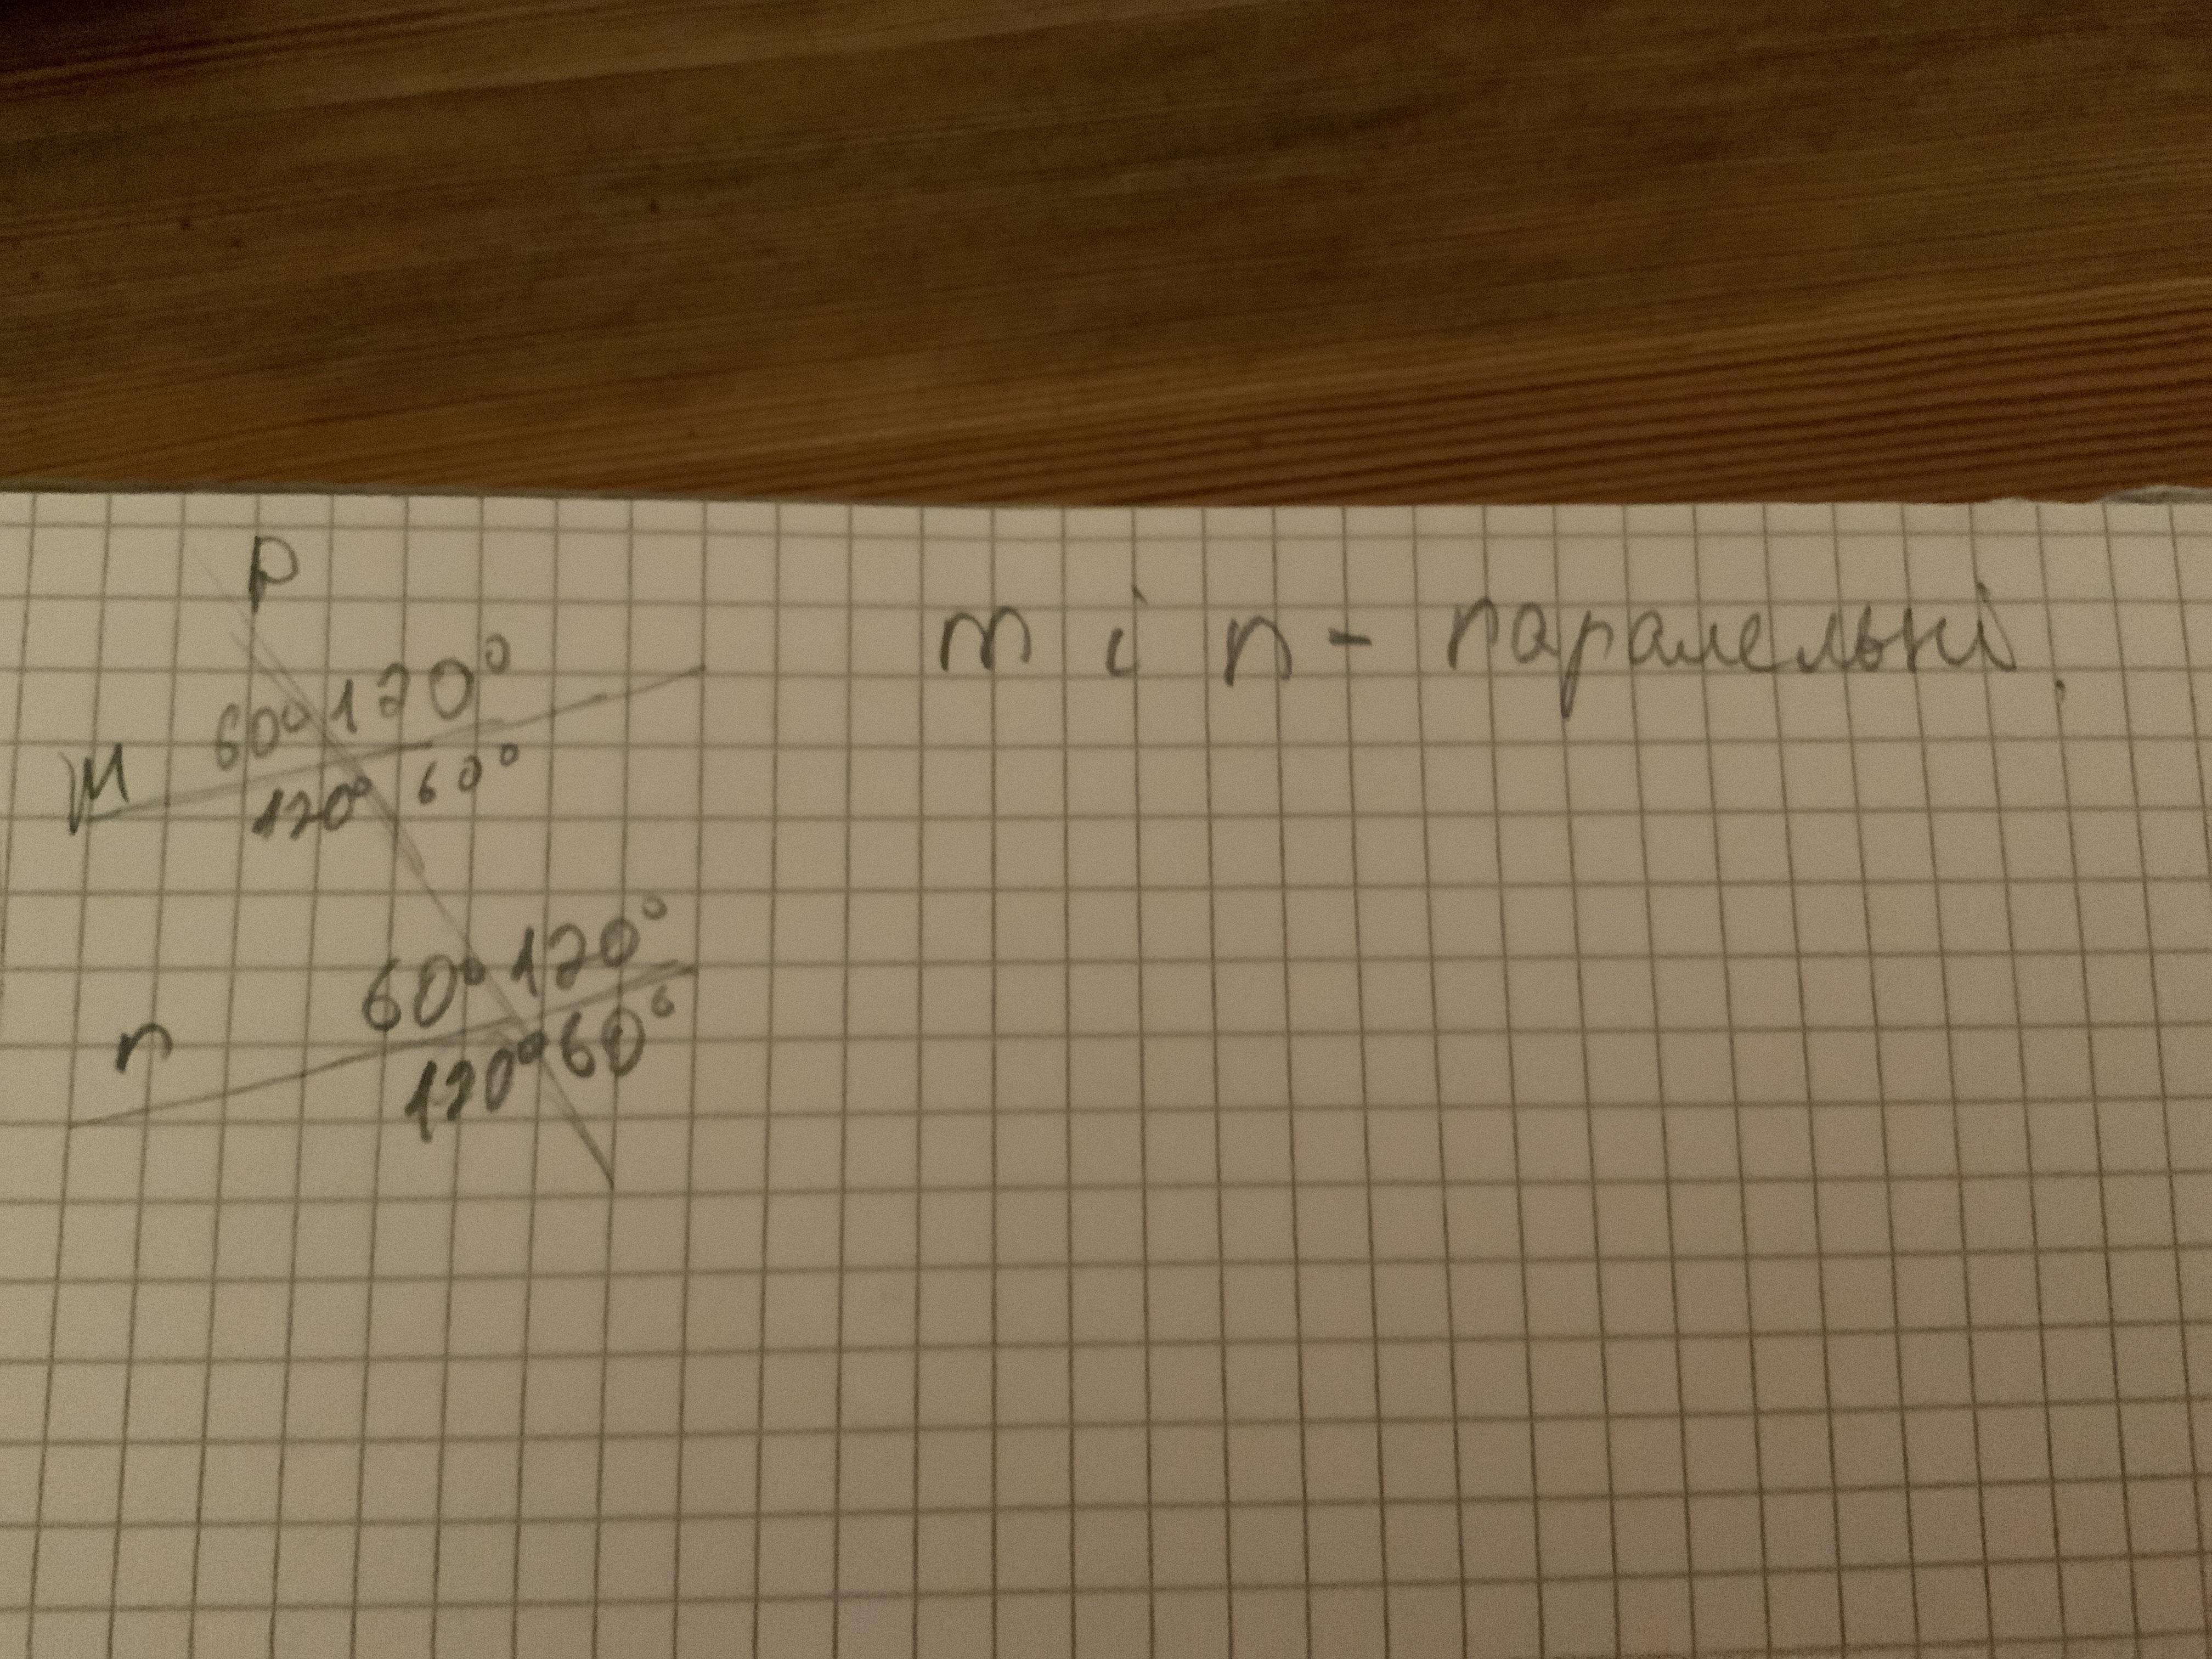 p
m і n - паралельні.
60° 120°
M
120° 60°
60° 120°
n
120° 60°